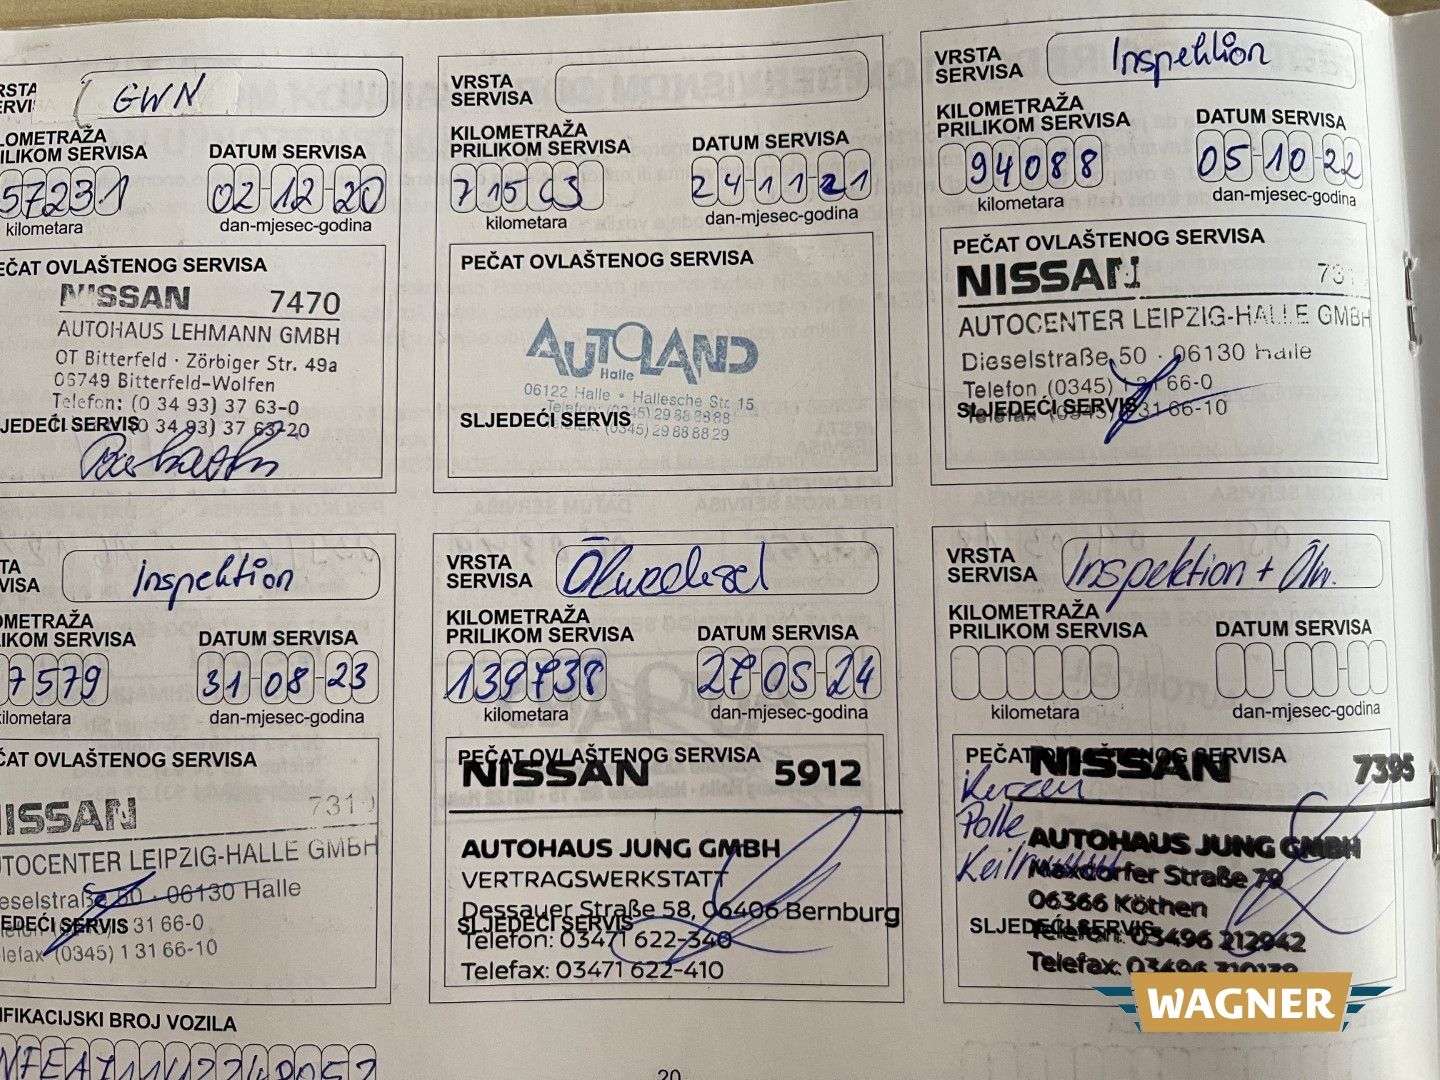 GWN
KILOMETRAŽA
PRILIKOM SERVISA
DATUM SERVISA
57231
02-12-20
kilometara
dan-mjesec-godina
PEČAT OVLAŠTENOG SERVISA
NISSAN 7470
AUTOHAUS LEHMANN GMBH
OT Bitterfeld · Zörbiger Str. 49a
06749 Bitterfeld-Wolfen
Telefon: (0 34 93) 37 63-0
(0 34 93) 37 63-20
SLJEDEĆI SERVIS
VRSTA
SERVISA
KILOMETRAŽA
PRILIKOM SERVISA
DATUM SERVISA
71503
24-11-21
kilometara
dan-mjesec-godina
PEČAT OVLAŠTENOG SERVISA
AUTOLAND
Halle
06122 Halle • Hallesche Str. 15
Telefon: (0345) 29 88 88 88
Telefax: (0345) 29 88 88 29
SLJEDEĆI SERVIS
VRSTA
SERVISA
Inspektion
KILOMETRAŽA
PRILIKOM SERVISA
DATUM SERVISA
94088
05-10-22
kilometara
dan-mjesec-godina
PEČAT OVLAŠTENOG SERVISA
NISSAN
AUTOCENTER LEIPZIG-HALLE GMBH
Dieselstraße 50 · 06130 Halle
Telefon (0345) 1 31 66-0
Telefax (0345) 1 31 66-10
SLJEDEĆI SERVIS
Inspektion
DATUM SERVISA
7579
31-08-23
kilometara
dan-mjesec-godina
PEČAT OVLAŠTENOG SERVISA
NISSAN
AUTOCENTER LEIPZIG-HALLE GMBH
Dieselstraße 50 · 06130 Halle
31 66-0
(0345) 1 31 66-10
SLJEDEĆI SERVIS
VRSTA
SERVISA
Ölwechsel
KILOMETRAŽA
PRILIKOM SERVISA
DATUM SERVISA
139738
27-05-24
kilometara
dan-mjesec-godina
PEČAT OVLAŠTENOG SERVISA
NISSAN 5912
AUTOHAUS JUNG GMBH
VERTRAGSWERKSTATT
Dessauer Straße 58, 06406 Bernburg
SLJEDEĆI SERVIS
Telefon: 03471 622-340
Telefax: 03471 622-410
VRSTA
SERVISA
Inspektion + Ölw.
KILOMETRAŽA
PRILIKOM SERVISA
DATUM SERVISA
kilometara
dan-mjesec-godina
PEČAT OVLAŠTENOG SERVISA
NISSAN 7395
Kerzen
Polle
AUTOHAUS JUNG GMBH
Maxdorfer Straße 79
06366 Köthen
SLJEDEĆI SERVIS
Telefon: 03496 212942
Telefax: 03496 310139
BROJ VOZILA
20
WAGNER